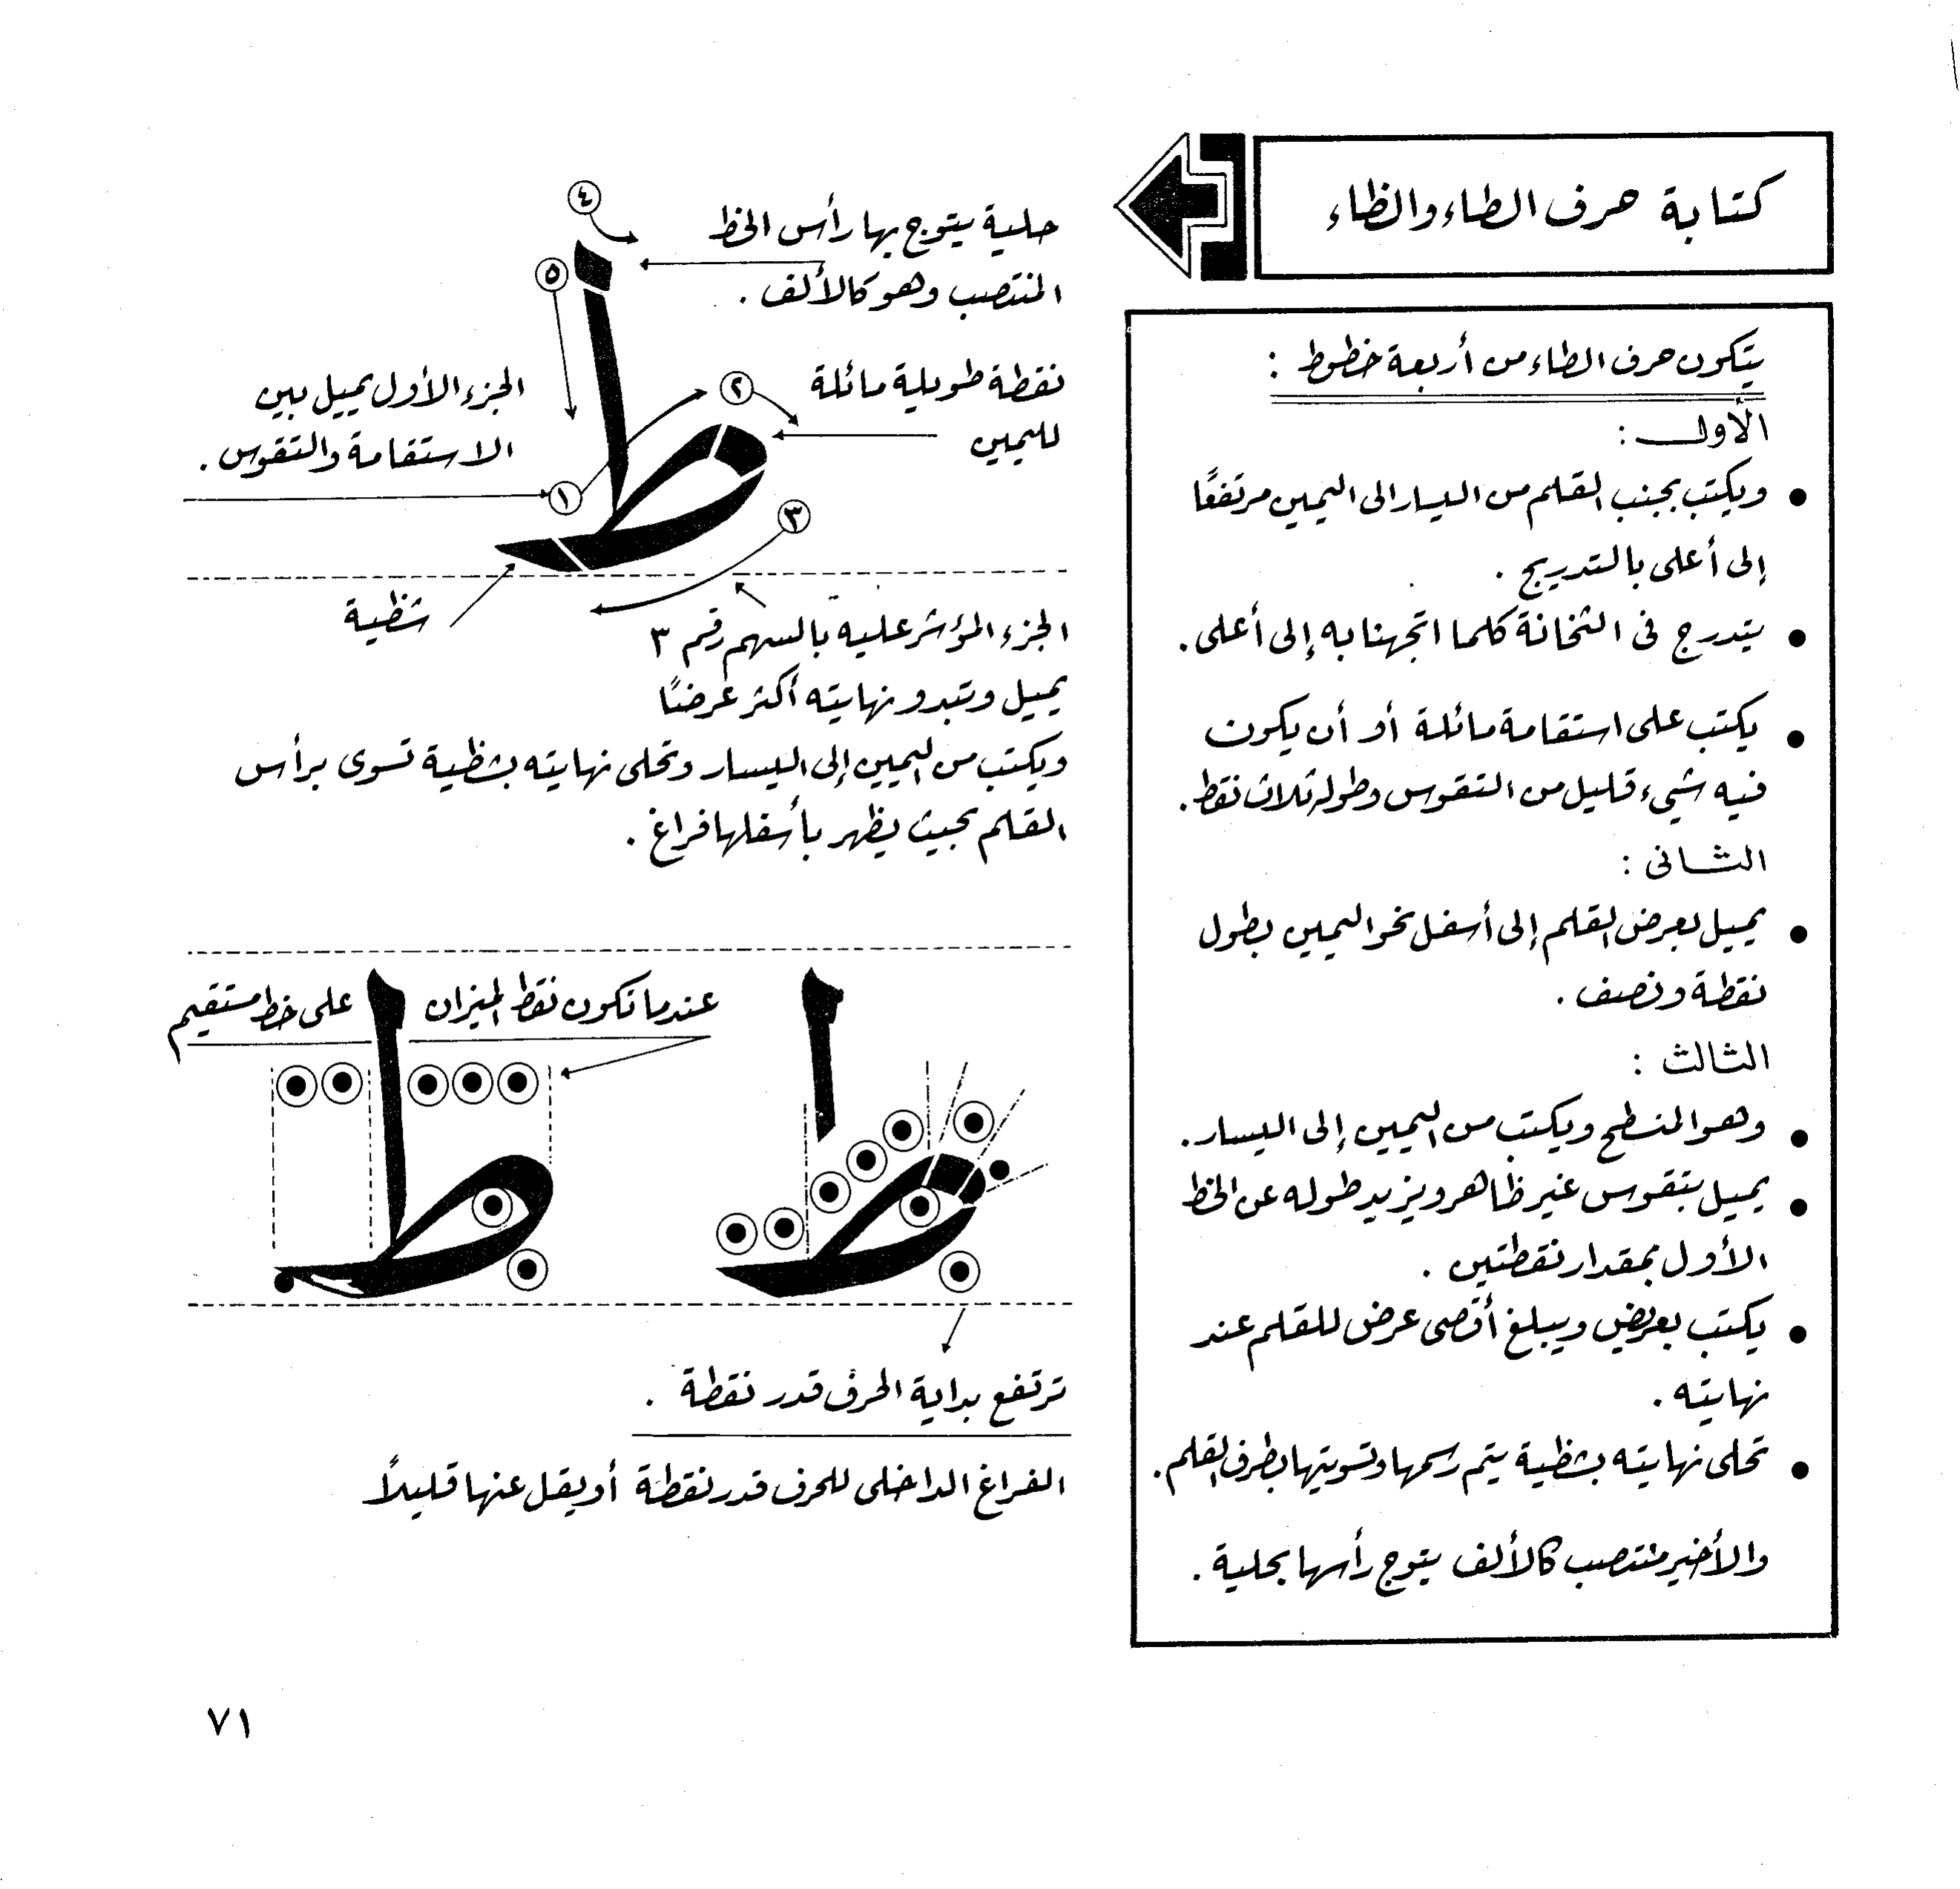 كتابة حرف الطاء والظاء
يتكون حرف الطاء من أربعة خطوط :
الأول :
● ويكتب بجنب القلم من اليسار الى اليمين مرتفعًا
إلى أعلى بالتدريج .
● يتدرج فى الثخانة كلما اتجهنا به إلى أعلى .
● يكتب على استقامة مائلة أو أن يكون
فيه شيء قليل من التقوس وطوله ثلاث نقط .
الثانى :
● يميل بعرض القلم إلى أسفل نحو اليمين بطول
نقطة ونصف .
الثالث :
● وهو المنسطح ويكتب من اليمين إلى اليسار .
● يميل بتقوس غير ظاهر ويزيد طوله عن الخط
الأول بمقدار نقطتين .
● يكتب بعرض ويبلغ أقصى عرض للقلم عند
نهايته .
● تحلى نهايته بشظية يتم رسمها وتسويتها بطرف القلم .
والأخير منتصب كالألف يتوج رأسها بحلية .
٤
حلية يتوج بها رأس الخط
المنتصب وهو كالألف .
٥
نقطة طويلة مائلة
لليمين
٢
الجزء الأول يميل بين
الاستقامة والتقوس .
١
٣
شظية
الجزء المؤشر عليه بالسهم رقم ٣
يميل وتبدو نهايته أكثر عرضًا
ويكتب من اليمين إلى اليسار وتحلى نهايته بشظية تسوى برأس
القلم بحيث يظهر بأسفلها فراغ .
عندما تكون نقط الميزان على خط مستقيم
ترتفع بداية الحرف قدر نقطة .
الفراغ الداخلى للحرف قدر نقطة أو يقل عنها قليلاً
٧١